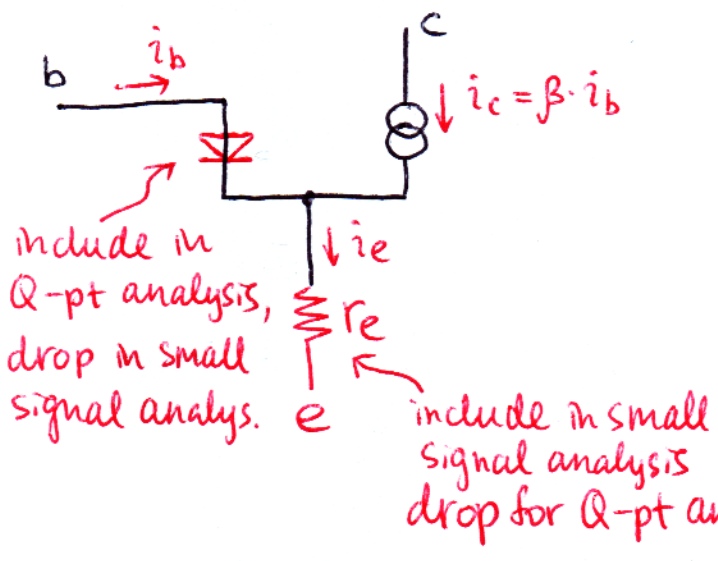 b
i_b
c
i_c = β · i_b
include in
Q-pt analysis,
drop in small
signal analys.
i_e
r_e
e
include in small
signal analysis
drop for Q-pt